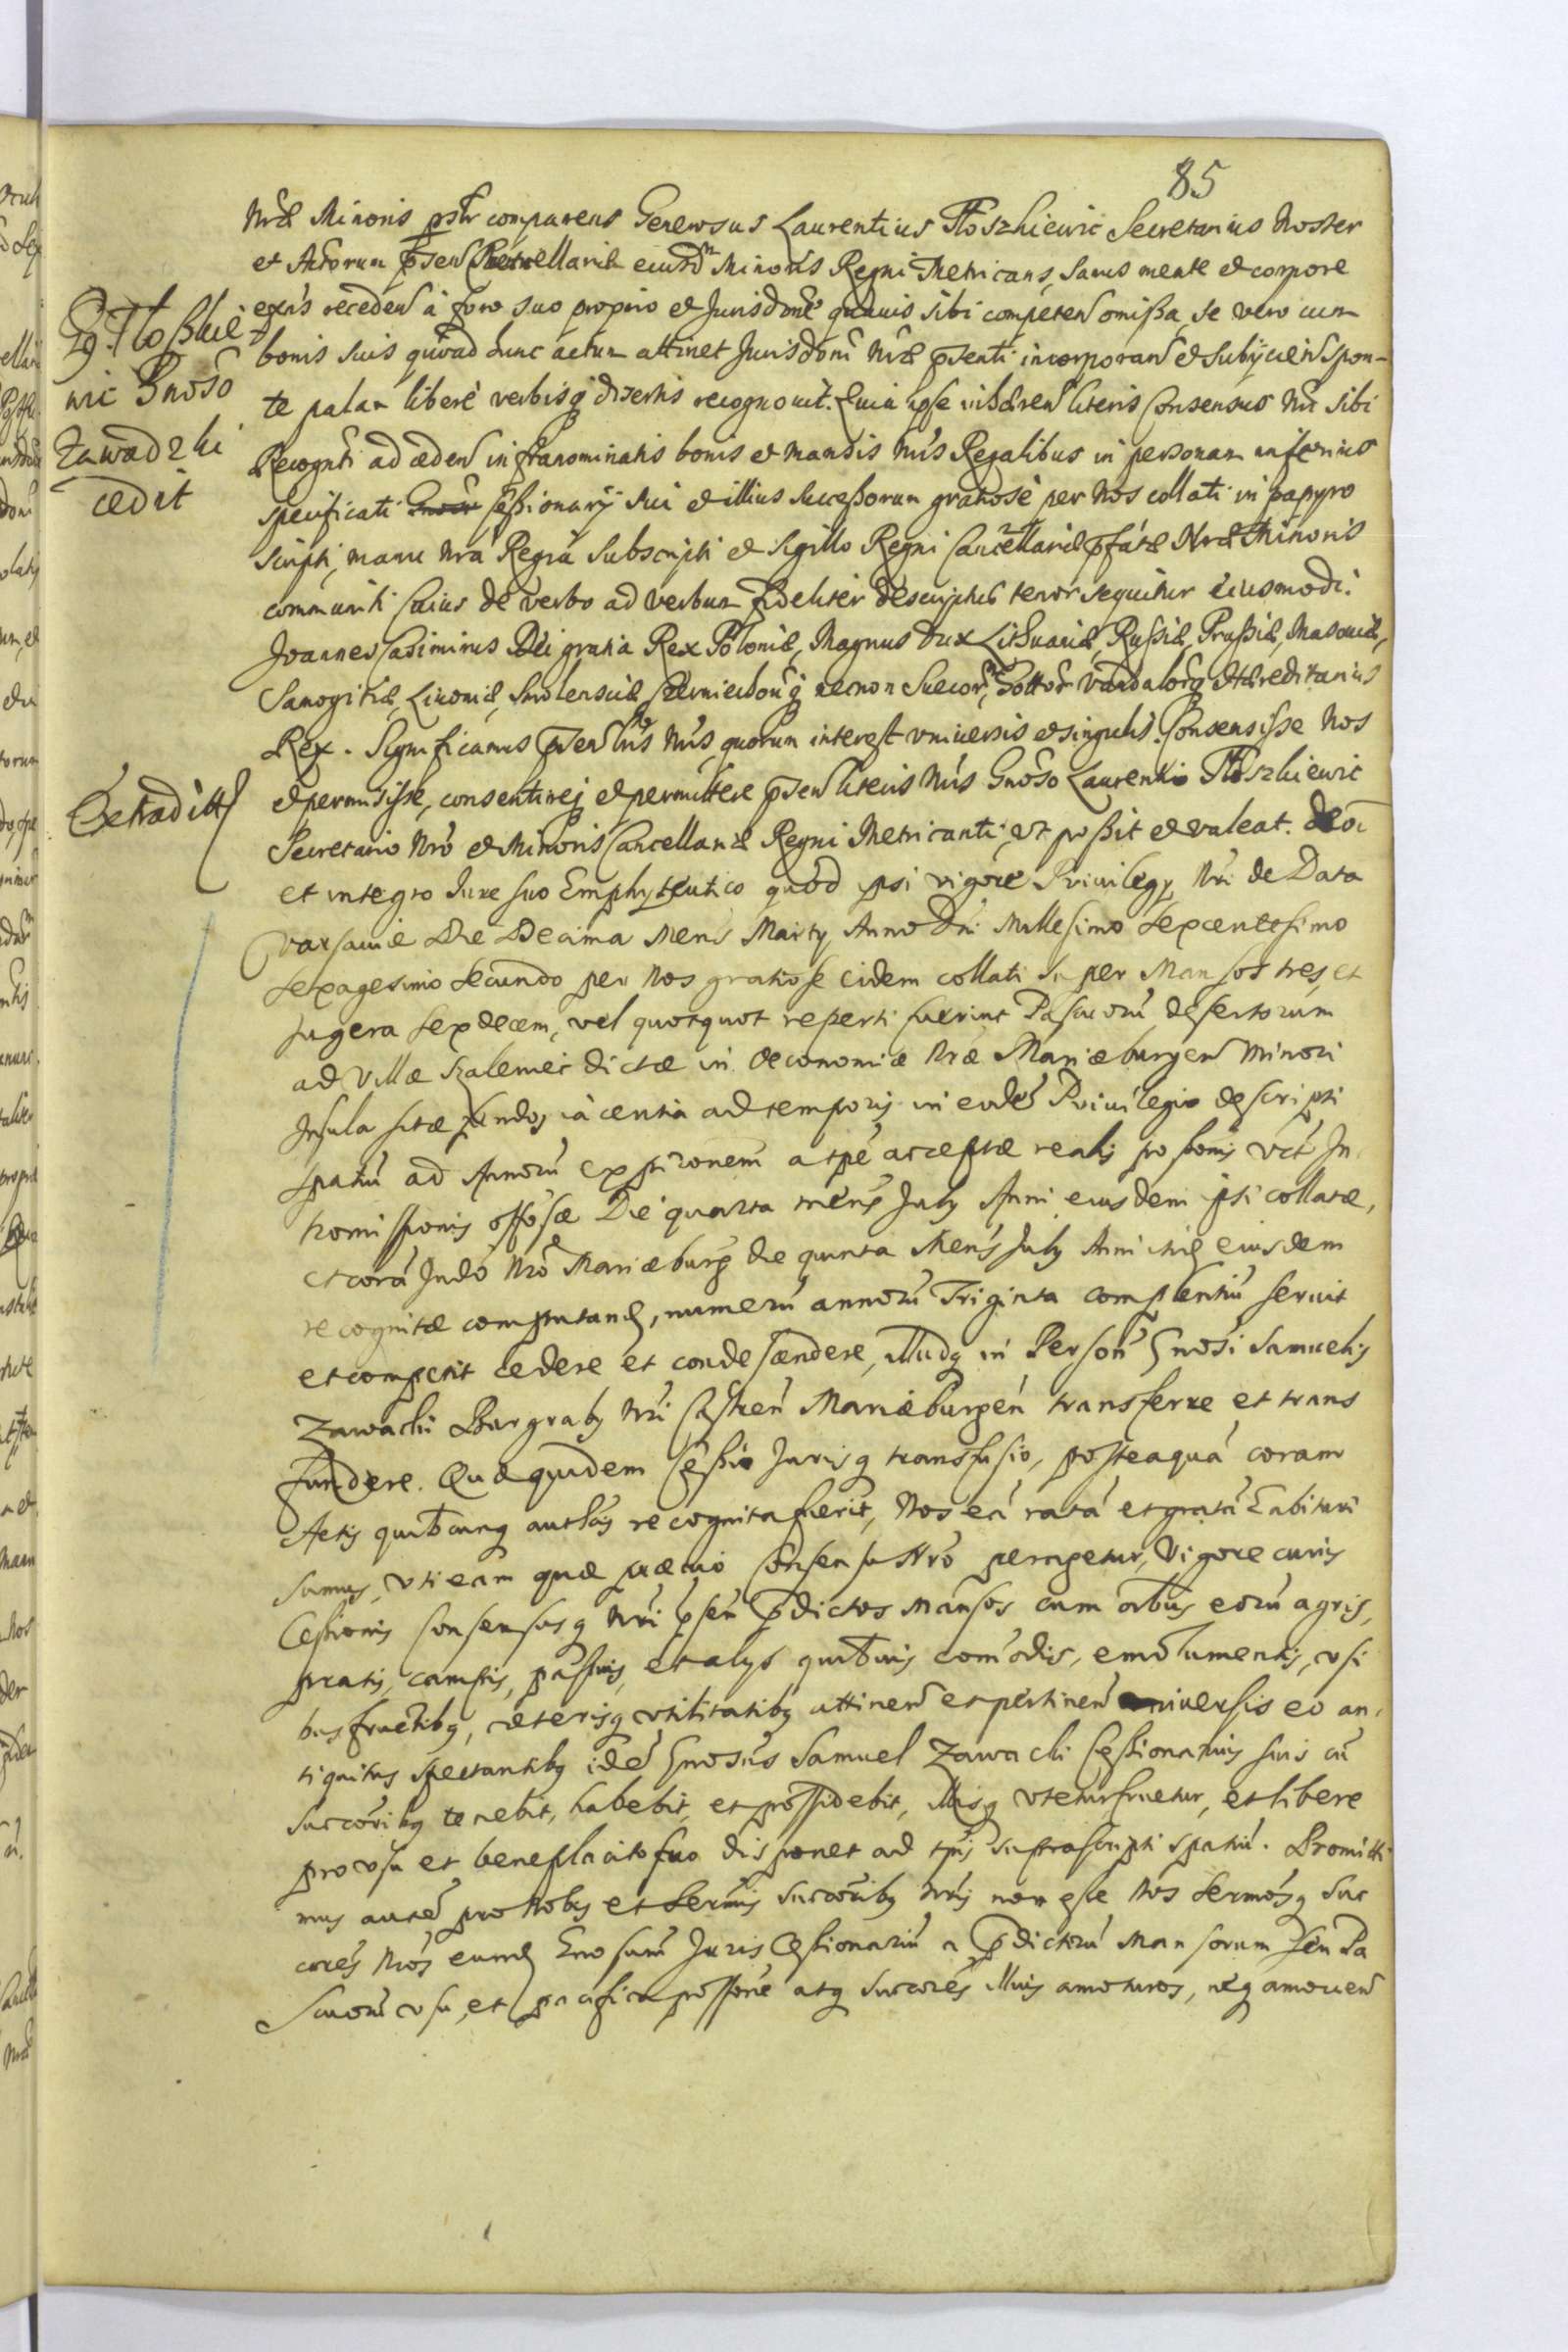 85
Nrae Minoris psltr comparens Generosus Laurentius Tłoszkiewic Secretarius Noster
et Actorum psen Cancellariae eiusdm Minoris Regni Metricans, sanus mente et corpore
exns receden à foro suo proprio et Jurisdone quauis sibi competen omißa, se vero cum
bonis suis quoad hunc actum attinet Jurisdoni Nrae psenti incorporan et subijcien spon-
te palam liberè verbisq disertis recognouit. Quia ipse inhaeren literis Consensus Nri sibi
Recognti ad caeden infranominatis bonis et mansis Nris Regalibus in personam inferius
specificati Cessionarij sui et illius Successorum gratiosè per Nos collati in papyro
scripti, manu Nra Regia subscripti et sigillo Regni Cancellariae pfatae Nrae Minoris
communiti Cuius de verbo ad verbum fideliter descriptus tenor sequitur eiusmodi.
Joannes Casimirus Dei gratia Rex Poloniae, Magnus Dux Lithuaniae, Rußiae, Prußiae, Masouiae,
Samogitiae, Liuoniae, Smolensciae Czerniechouq necnon Suecor, Gottor Vandalorq Haereditarius
Rex. Significamus psen lris Nris, quorum interest vniuersis et singulis. Consensisse Nos
et permisisse, consentireq et permittere psen literis Nris Gnoso Laurentio Tłoszkiewic
Secretario Nro et Minoris Cancellariae Regni Metricanti, vt poßit et valeat. de oi
et integro Jure suo Emphyteutico quod ipsi vigore Priuilegij Nri de Data
Varsauiae Die Decima Mens Martij Anno Dni Millesimo Sexcentesimo
Sexagesimo Secundo per Nos gratiose eidem collati super Mansos tres, et
Jugera Sexdecem, vel quotquot reperti fuerint Pascuorū desertorum
ad Villae Szaleniec dictae in Oeconomia Nra Mariaeburgen Minori
Insula sitae fundos iacentia ad temporis in eodē Priuilegio descripti
spatiū ad Annorū expironem a tpe acceptae realis possonis vel In
tromissionis offosae Die quarta mens July Anni eiusdem ipsi collatae,
et corā Judo Nro Mariaeburg die quinta Mens July Anni itid eiusdem
recognitae computand, numerū annorū Triginta complentiū seruit
et competit cedere et condescendere, illudq in Person Gnosi Samuelis
Zawacki Burgraby Nri Castren Mariaeburgen transferre et trans
fundere. Quae quidem Ceßio Jurisq transfusio, posteaquā coram
Actis quibcunq authcis recognita fuerit, Nos eā ratā et gratā habituri
sumus, vti eam quae praeuio Consensu Nro peragetur, Vigore cuius
Ceßionis Consensusq Nri psen pdictos Mansos cum oibus eorū agris,
pratis, campis, pascuis, et alys quibuis comodis, emolumentis, vsi
bus fructibq, caeterisq vtilitatibq attinen et pertinen vniuersis eo an-
tiquitus spectantibq idē Gnosus Samuel Zawacki Ceßionarius suis cū
succoribq tenebit, habebit, et possidebit, illisq vtetur fruetur, et libere
pro vsu et beneplacito suo disponet ad tpis suprascripti spatiū. Promitti-
mus autē pro Nobis et Sermis Succoribq Nris non esse Nos Sermosq Suc
cores Nros eumd Gnosum Juris Ceßionariū a pdictorū Mansorum seu Pa
scuorū vsu, et pacifica possone atq Succores illius amoturos, neq amouen
Gg. Tłoßkie
wic Gnoso
Zawadzki
cedit
Extraditt